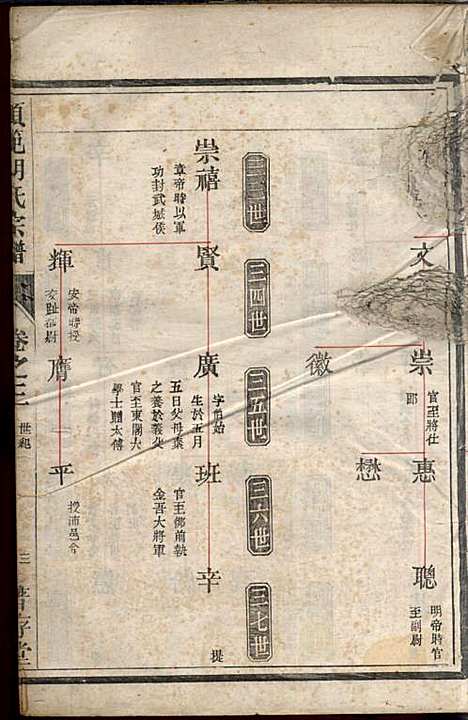 文
崇
官至將仕
郎
惠
聰
明帝時官
至副尉
徽
懋
三三世
三四世
三五世
三六世
三七世
崇禧
章帝時以軍
功封武城侯
賢
廣
字伯始
生於五月
五日父母棄
之養於義父
官至東閣大
學士贈太傅
班
官至御前執
金吾大將軍
辛
提
輝
安帝時授
交趾都尉
膺
平
授沛邑令
範胡氏宗譜
卷之三
世紀
三